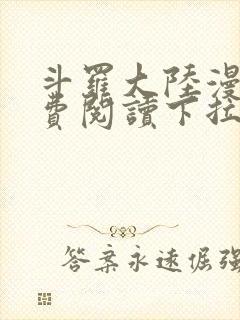 斗羅大陸漫
費閱讀下拉
答案永遠倔強